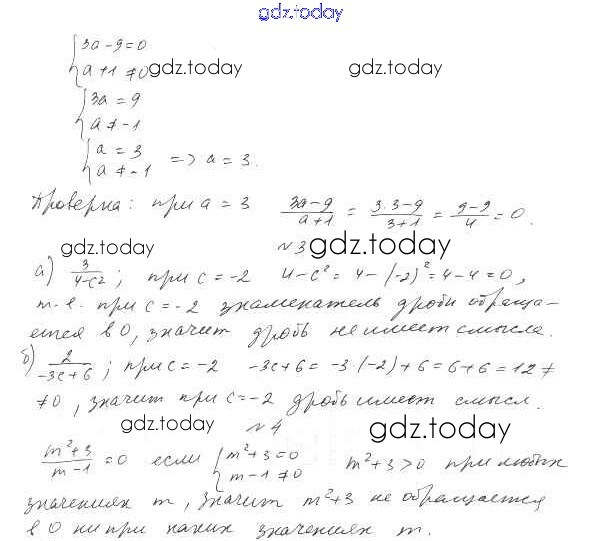 gdz.today
{ 3a - 9 = 0
{ a + 1 ≠ 0 gdz.today gdz.today
{ 3a = 9
{ a ≠ -1
{ a = 3
{ a ≠ -1 => a = 3.
Проверка: при a = 3 (3a-9)/(a+1) = (3·3-9)/(3+1) = (9-9)/4 = 0.
gdz.today №3 gdz.today
а) 3/(4-c²); при c = -2 4 - c² = 4 - (-2)² = 4 - 4 = 0,
т.е. при c = -2 знаменатель дроби обраща-
ется в 0, значит дробь не имеет смысла.
б) 2/(-3c+6); при c = -2 -3c + 6 = -3·(-2) + 6 = 6 + 6 = 12 ≠
≠ 0, значит при c = -2 дробь имеет смысл.
gdz.today №4 gdz.today
(m²+3)/(m-1) = 0 если { m² + 3 = 0
{ m - 1 ≠ 0 m² + 3 > 0 при любых
значениях m, значит m² + 3 не обращается
в 0 ни при каких значениях m.